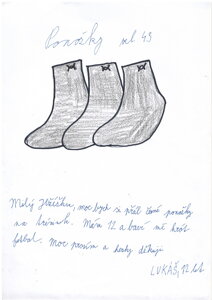 Ponožky vel 43
Milý Ježíšku, moc bych si přál nové ponožky
na trénink. Mám 12 a baví mě hrát
fotbal. Moc prosím a hezky děkuji
LUKÁŠ, 12 let